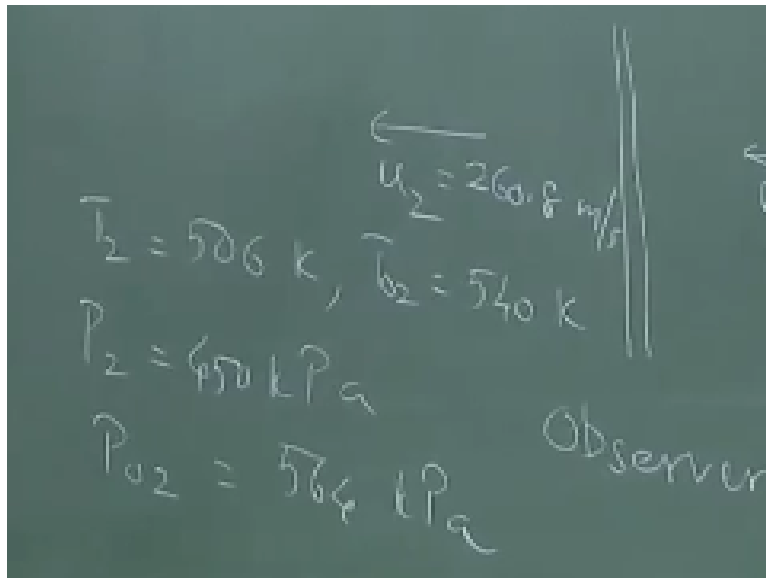 u₂ = 260.8 m/s
T₂ = 506 K, T₀₂ = 540 K
P₂ = 450 kPa
P₀₂ = 564 kPa
Observer